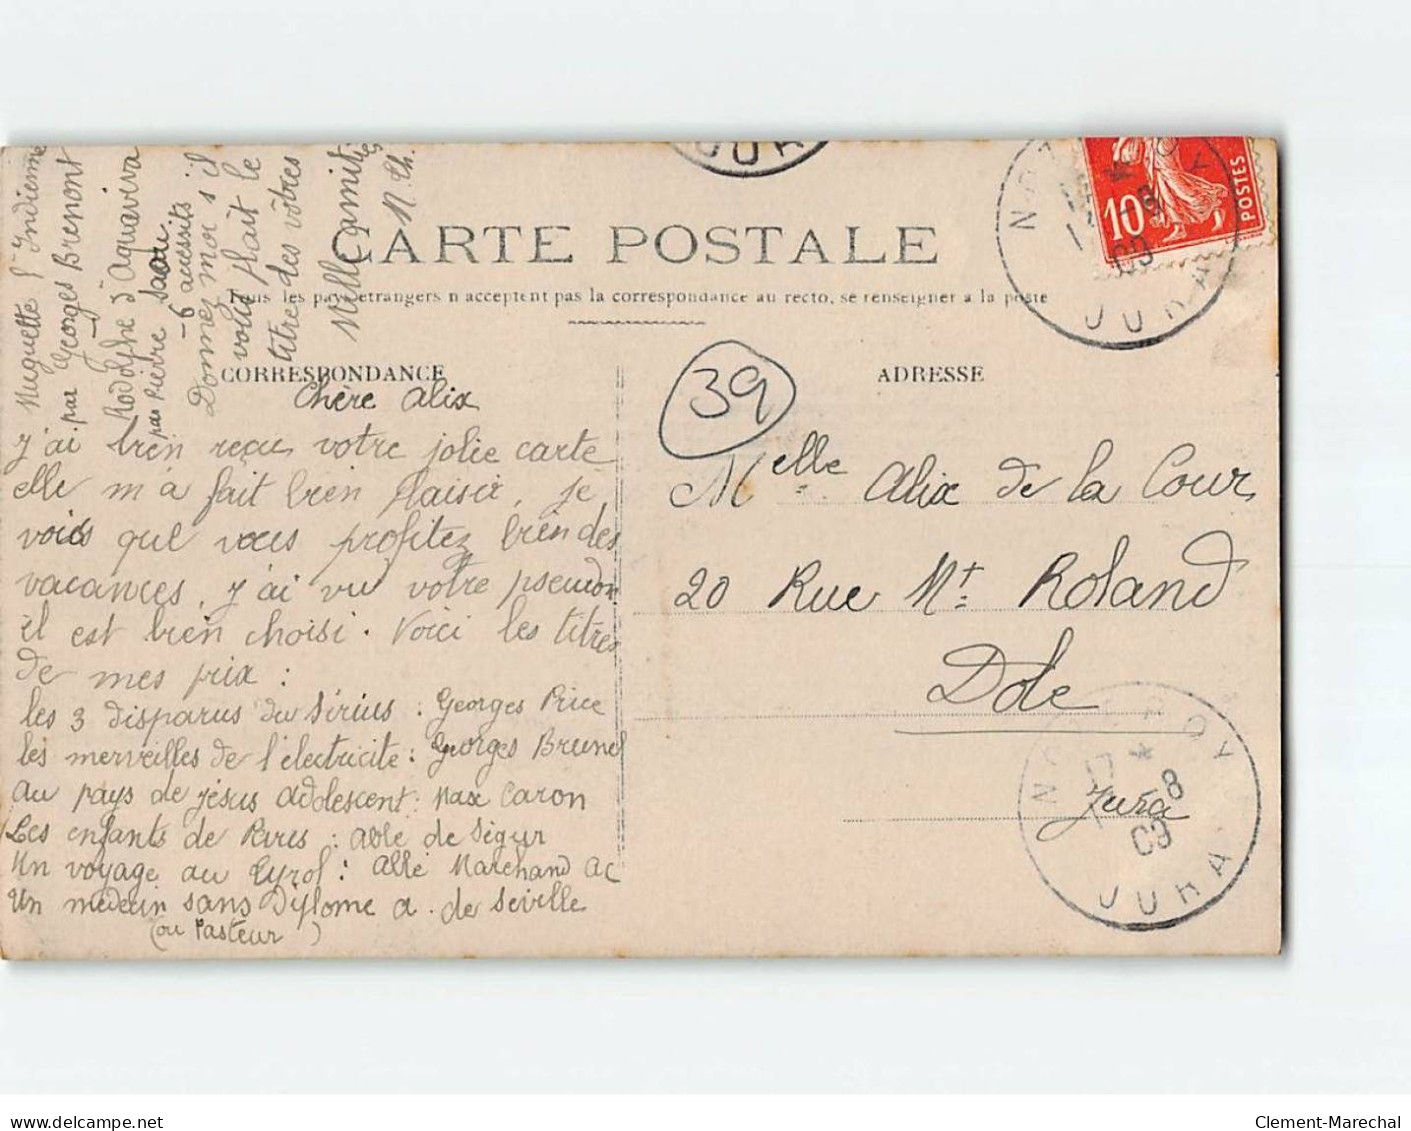 CARTE POSTALE
Tous les pays étrangers n'acceptent pas la correspondance au recto, se renseigner à la poste
CORRESPONDANCE
ADRESSE
39
Chère Alix
J'ai bien reçu votre jolie carte
elle m'a fait bien plaisir, je
vois que vous profitez bien des
vacances, j'ai vu votre pseudon
il est bien choisi. Voici les titres
de mes prix :
les 3 disparus du Sirius : Georges Price
les merveilles de l'électricité : Georges Brunel
Au pays de Jésus adolescent : Max Caron
Les enfants de Paris : de Ségur
Un voyage au Tyrol : Abbé Marchand
Un médecin sans Diplôme a. de Séville
(ou Pasteur )
Huguette l'Indienne
par Georges Bremont
Rodolphe d'Aquaviva
par Pierre
- 6 accessits -
Donnez moi s'il
vous plait le
titre des vôtres
Mille amitiés
N. Ch.
Melle Alix de la Cour
20 Rue Mt Roland
Dole
Jura
10
POSTES
JURA
JURA
17 * 
-8
09
JURA